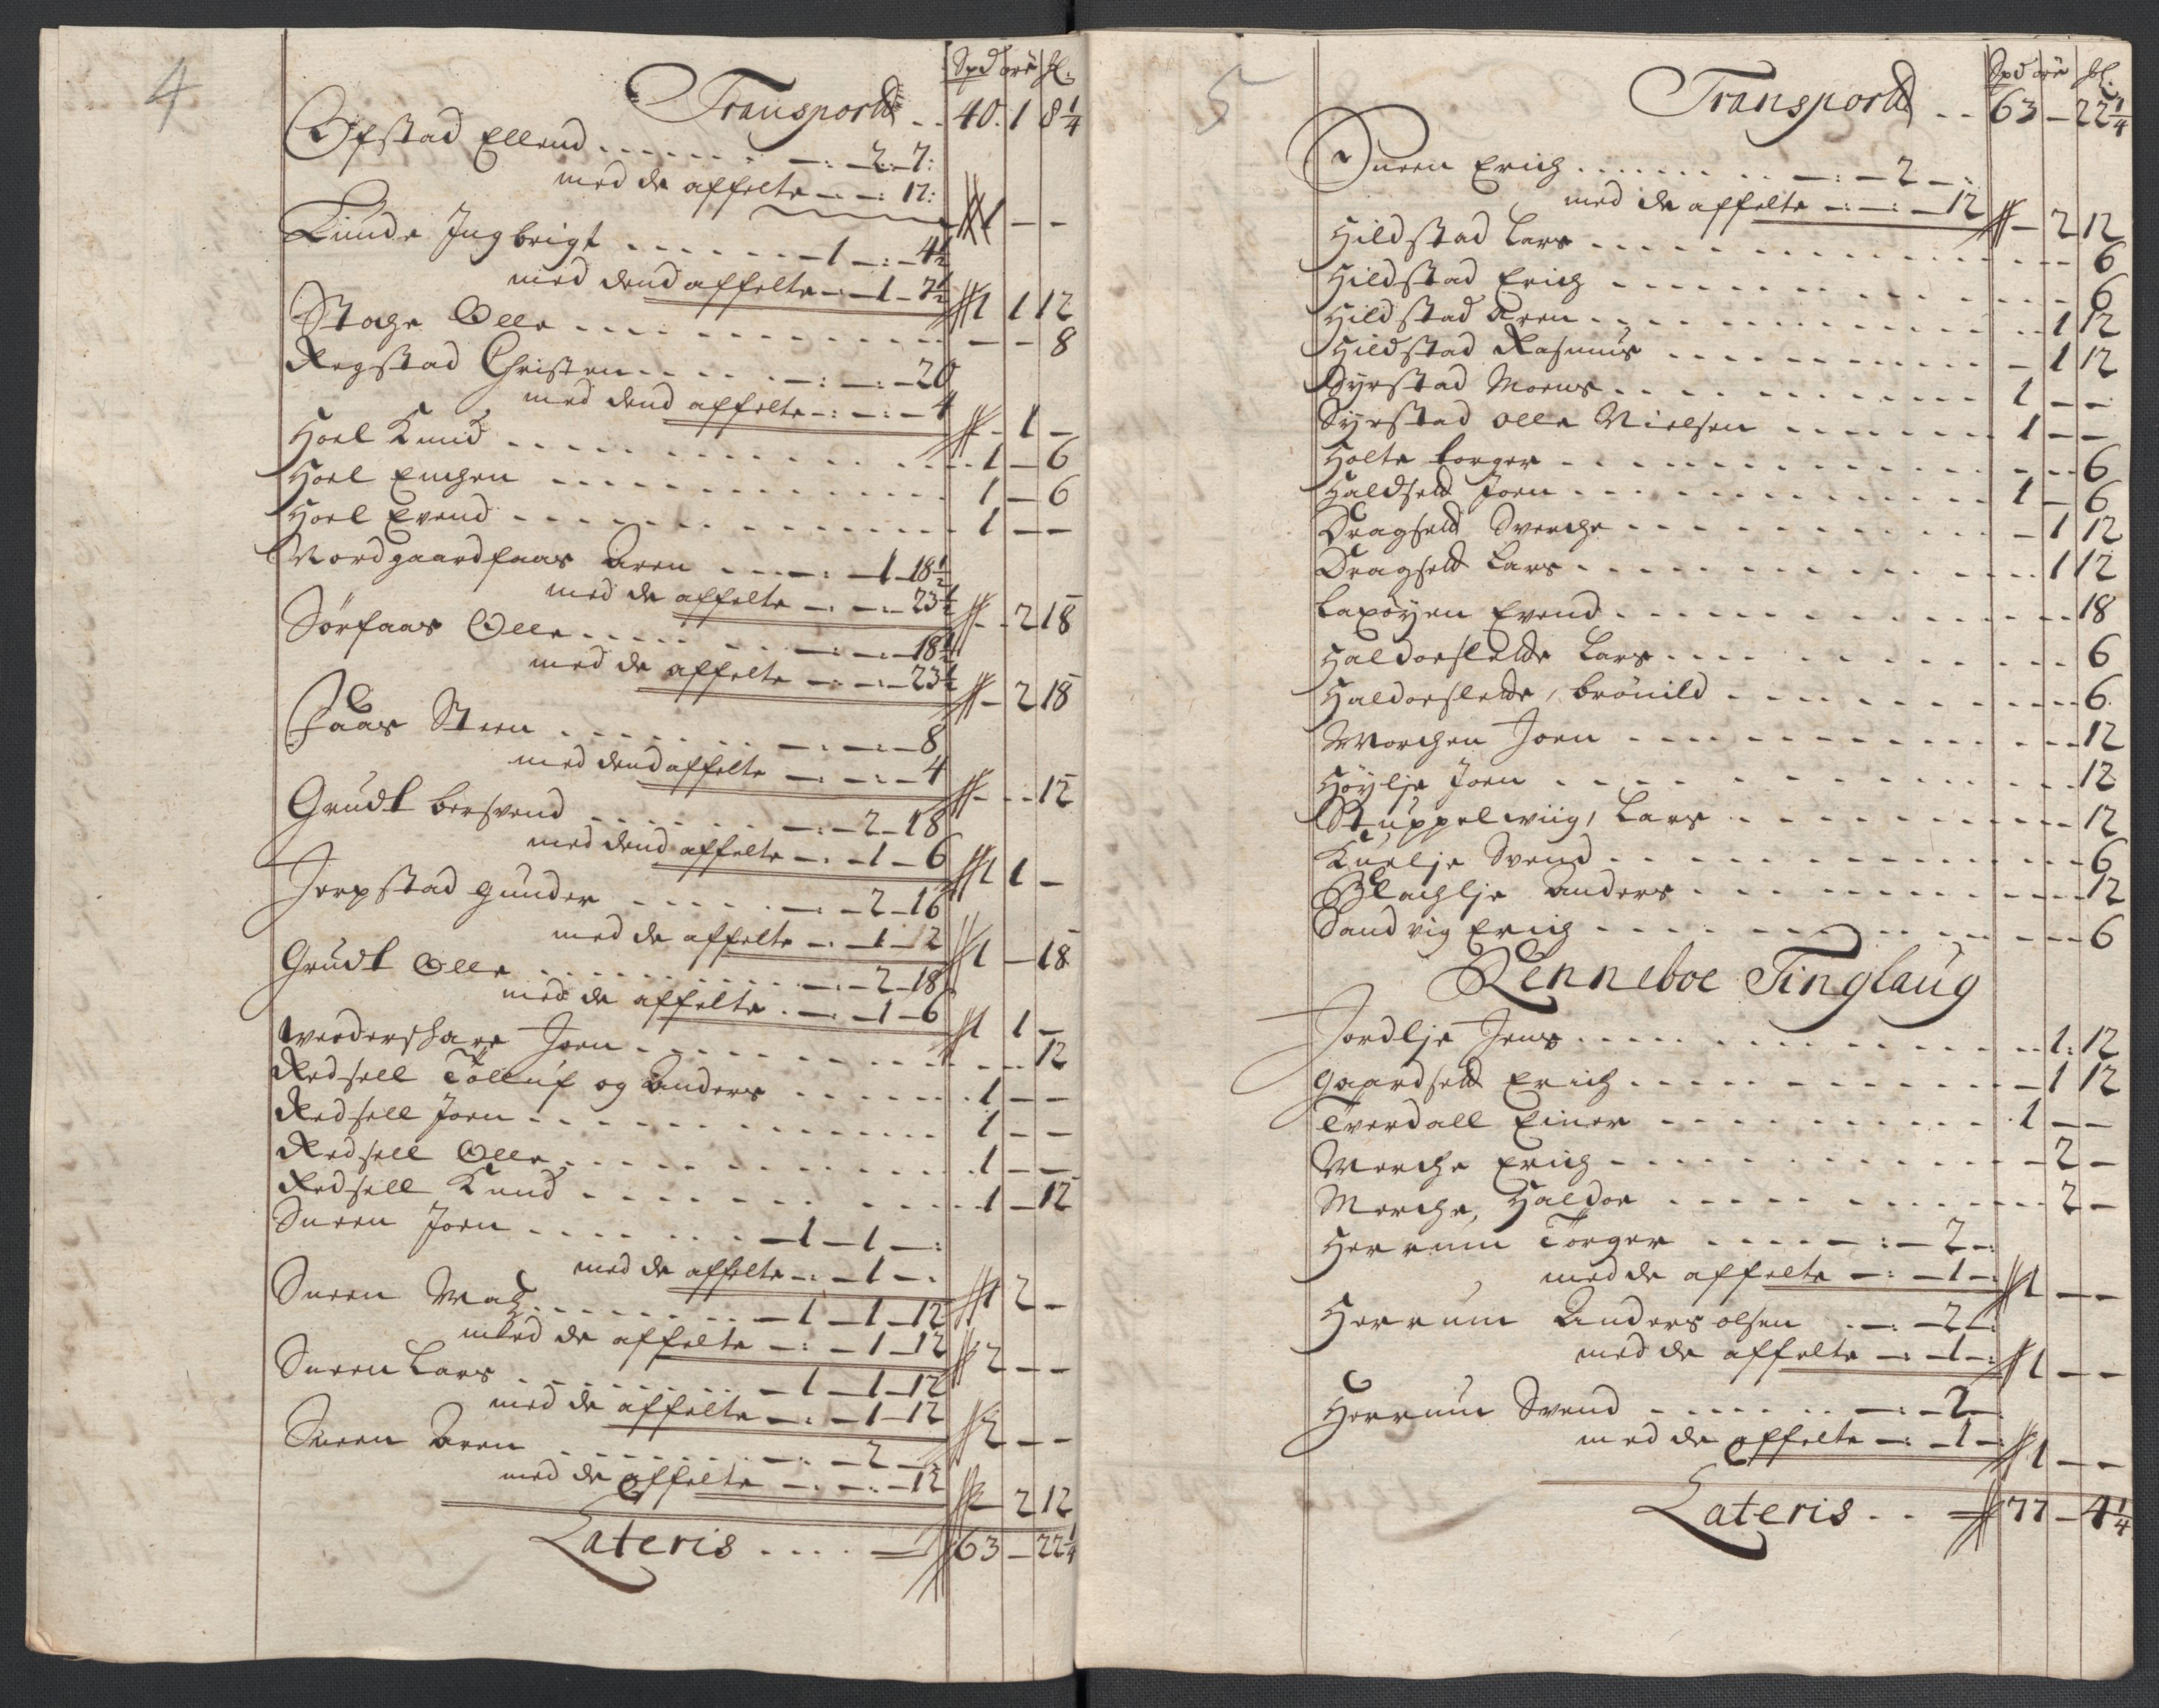 4
Spd ort ſl:
Transport . . 40. 1 8 1/4
Ofstad Ellend . . . . . . . —: — 2 – 7:
med de affelte — — : 17:
1 — —
Liunde Ingbrigt . . . . . . – 1 —: – 4 1/2
med dend affelte — : — 1 – 7 1/2 1 1 12
Stache Olle . . . . . . . . . — — 8
Regstad Christen . . . . . —: —: — 20
med dend affelte —: —: — 4 – 1 –
Hoel Knud . . . . . . . . . . 1 — 6
Hoel Engen . . . . . . . . . . 1 — 6
Hoel Evend . . . . . . . . . . 1 — —
Nordgaardfaas Aren . . . . — : — 1 – 18 1/2
med de affelte — : — : — 23 1/2 – 2 18
Sørfaas Olle . . . . . . — : — : — 18 1/2
med de affelte — : — : — 23 1/2 – 2 18
Faas Steen . . . . . . . —: —: — 8
med dend affelte —: —: — 4 . . . 12
Grudt bersvend . . . . . . —: — 2 – 18
med dend affelte —: — 1 – 6 1 1 –
Jerpstad gunder . . . . . —: — 2 – 16
med de affelte —: — 1 – 2 1 — 18
Grudt Olle . . . . . . . —: — 2 – 18
med de affelte . —: — 1 – 6 1 1 –
Joen . . . . . . . . . . . . 12
Redsell Tolluf og Anders . . . . . . . 1 — —
Redsell Joen . . . . . . . . . . 1 — —
Redsell Olle . . . . . . . . . . 1 — —
Redsell Knud . . . . . . . . . . 1 — 12
Sneen Joen . . . . . . . — 1 — 1 — :
med de affelte —: — 1 —: 1 2 –
Sneen . . . . . . . — 1 — 1 — 12
med de affelte —: — 1 – 12 2 — —
Sneen Lars . . . . . . . — 1 — 1 – 12
med de affelte —: — 1 – 12 2 — —
Sneen Aren . . . . . . . —: — 2 — :
med de affelte —: —: — 12 – 2 12
Lateris . . . . 63 — 22 1/4
5
Spd ort ſl.
Transport . . 63 — 22 1/4
Sneen Erich . . . . . . . —: — 2 —:
med de affelte —: —: — 12 – 2 12
Hildstad Lars . . . . . . . . . . 6
Hildstad Erich . . . . . . . . . . 6
Hildstad Aren . . . . . . . . . . 1 12
Hildstad Rasmus . . . . . . . . . – 1 12
Syrstad Moens . . . . . . . . . 1 — —
Syrstad olle Nielsen . . . . . . . 1 — —
Holte borger . . . . . . . . . . 6
Haldseld Joen . . . . . . . . . 1 — 6
Dragseld Sverche . . . . . . . . – 1 12
Dragseld Lars . . . . . . . . . . 1 12
Laxøyen Evend . . . . . . . . . . 18
Haldorslette Lars . . . . . . . . . 6
Haldorslette, brønild . . . . . . . . 6
Morchen Joen . . . . . . . . . . 12
Høylje Joen . . . . . . . . . . 12
Stuppelwiig, Lars . . . . . . . . . 12
Kuelje Svend . . . . . . . . . . 6
Blachlje Anders . . . . . . . . . 12
Sandvig Erich . . . . . . . . . . 6
Renneboe Tinglaug
Jordlje Jens . . . . . . . . . . 1: 12
Gaardseld Erich . . . . . . . . . – 1 12
Tverdall Einer . . . . . . . . . 1 — —
Merche Erich . . . . . . . . . . – 2 –
Merche, Haldor . . . . . . . . . . 2 –
Herrum Torger . . . . . —: — 2 —:
med de affelte —: — 1 —: 1 — —
Herrum Anders olsen . —: — 2 —:
med de affelte —: — 1 —: 1 — —
Herrum Svend . . . . . . —: — 2 —
med de affelte —: — 1 —: 1 — —
Lateris . . 77 — 4 1/4